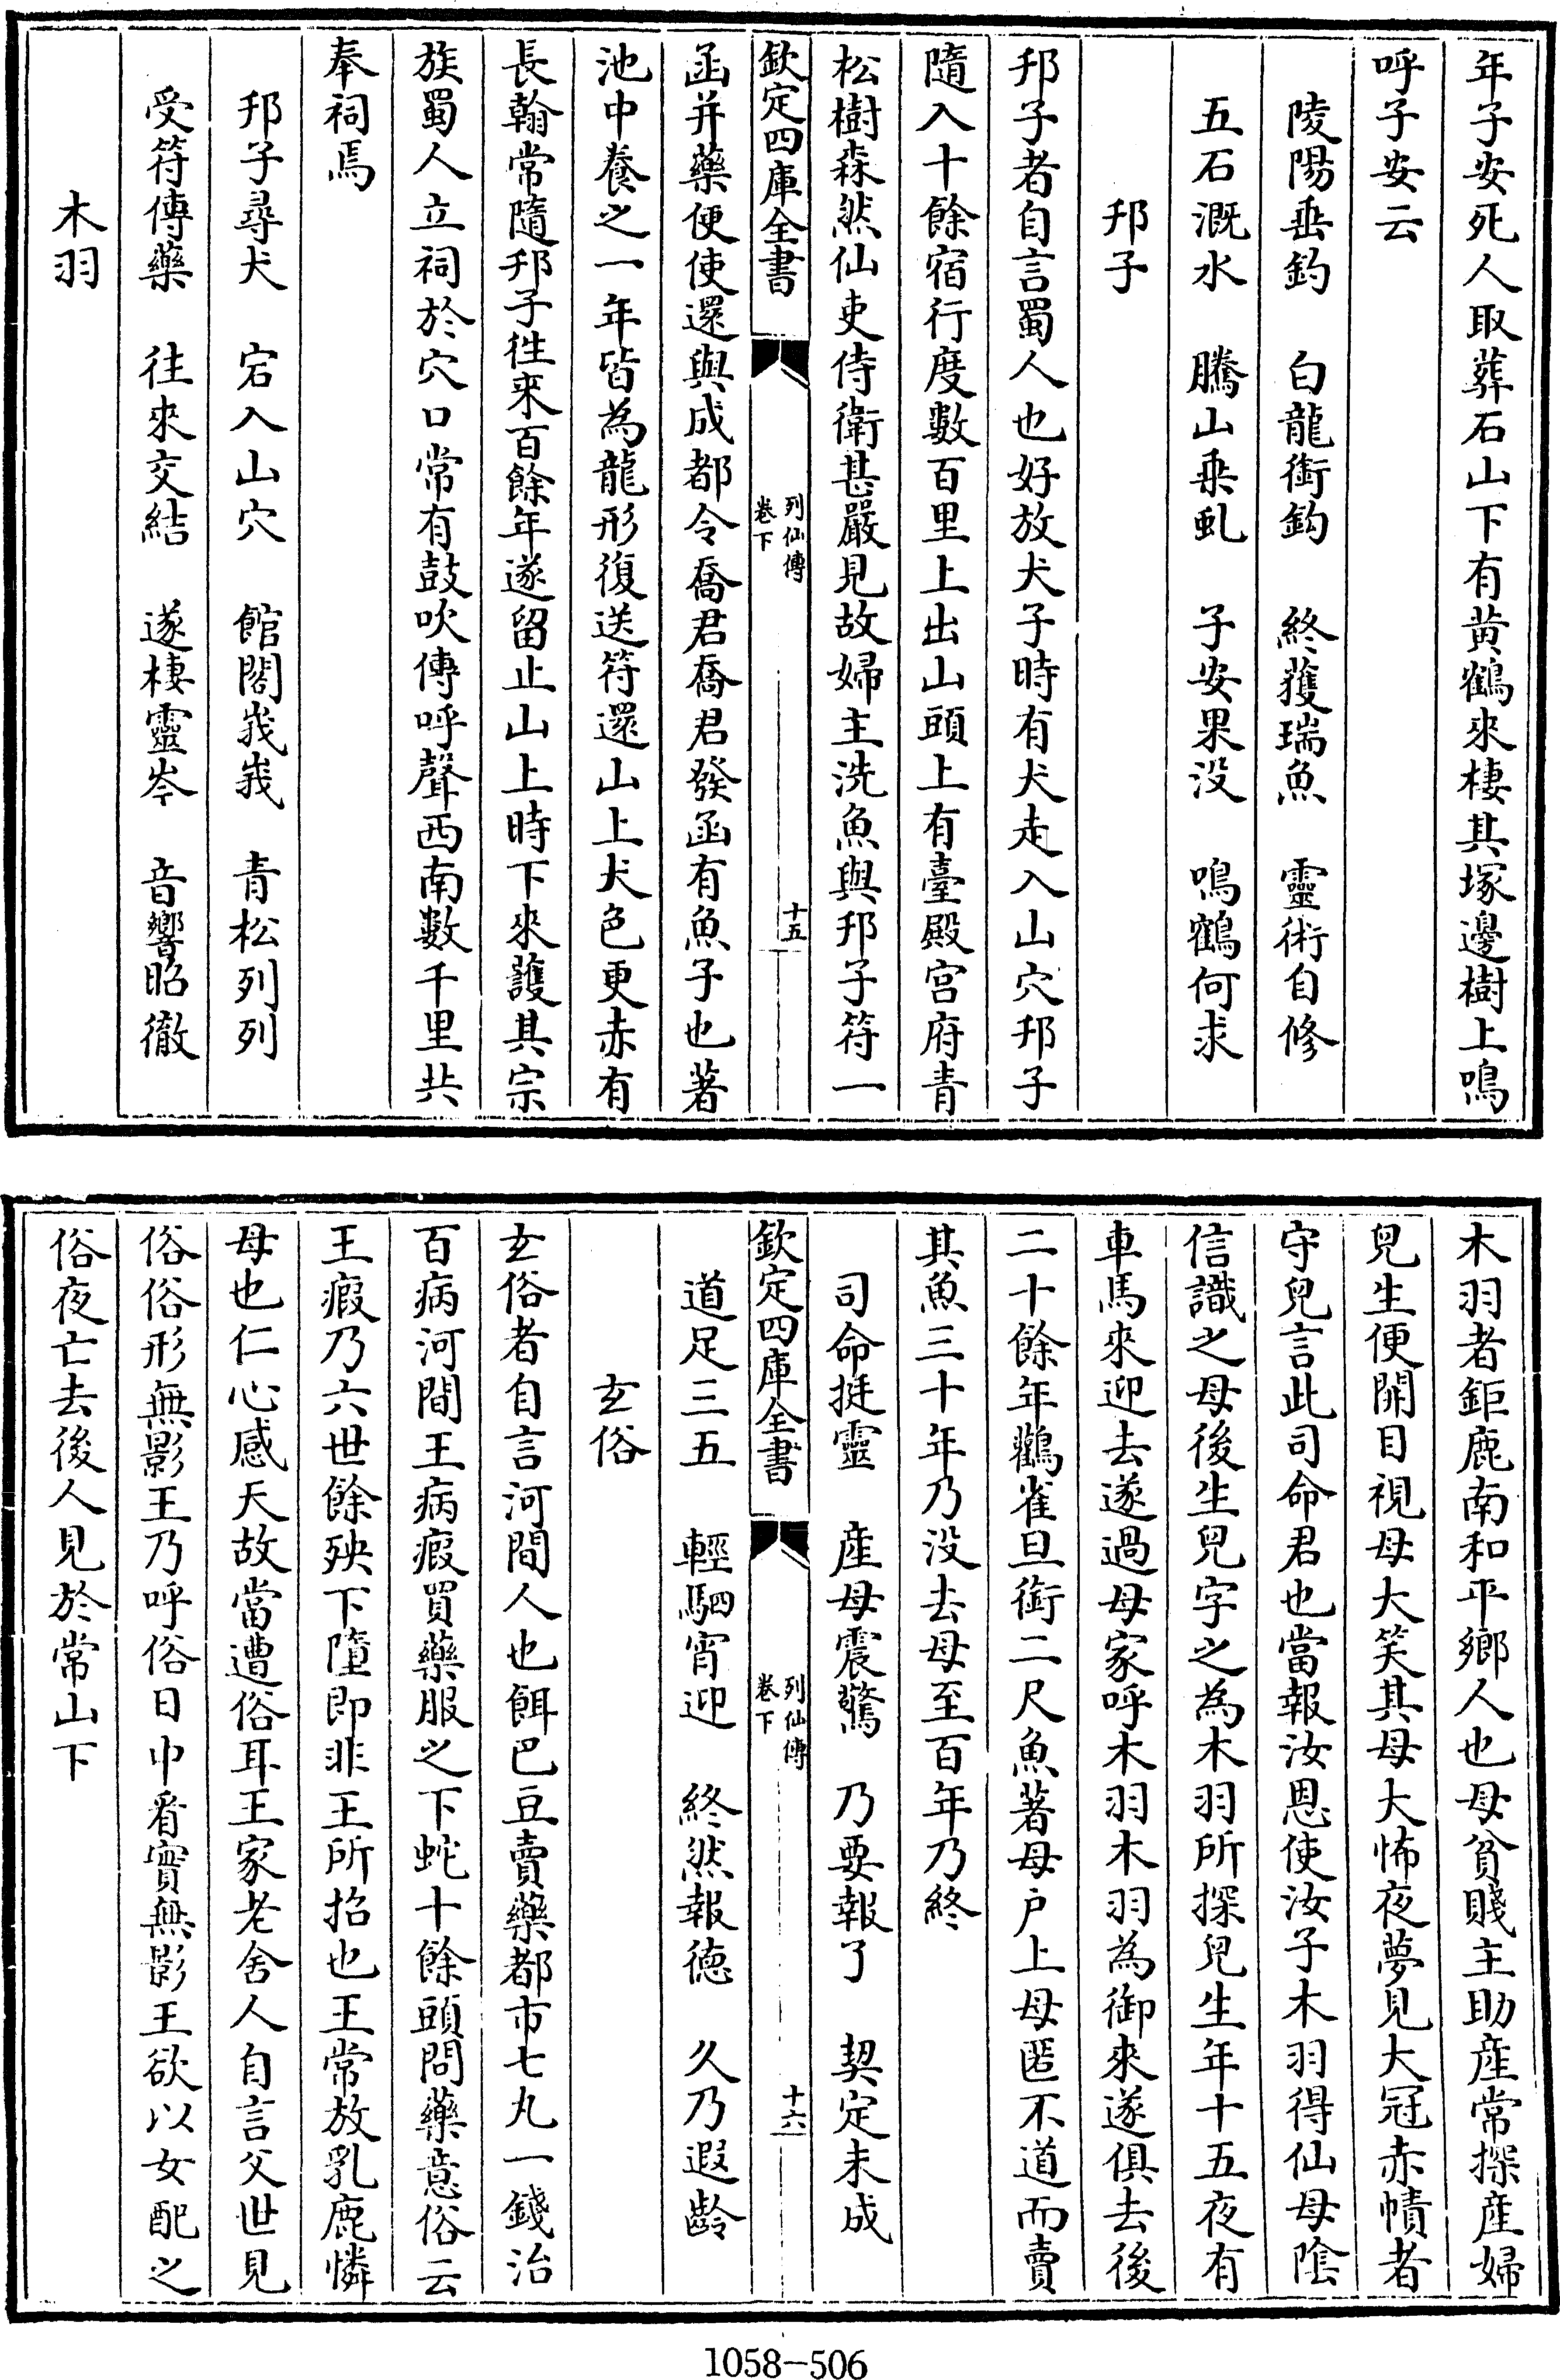 年子安死人取葬石山下有黄鶴來棲其塚邊樹上鳴
呼子安云
陵陽垂釣　白龍銜鈎　終獲瑞魚　靈術自修
五石溉水　騰山乗虬　子安果没　鳴鶴何求
邗子
邗子者自言蜀人也好放犬子時有犬走入山穴邗子
隨入十餘宿行度數百里上出山頭上有臺殿宫府青
松樹森然仙吏侍衛甚嚴見故婦主洗魚與邗子符一
欽定四庫全書
列仙傳
卷下
十五
函并藥便使還與成都令喬君喬君發函有魚子也著
池中養之一年皆為龍形復送符還山上犬色更赤有
長翰常隨邗子徃來百餘年遂留止山上時下來護其宗
族蜀人立祠於穴口常有鼓吹傳呼聲西南數千里共
奉祠焉
邗子尋犬　宕入山穴　館閣峩峩　青松列列
受符傳藥　往來交結　遂棲靈岑　音響昭徹
木羽
木羽者鉅鹿南和平鄉人也母貧賤主助産常探産婦
兒生便開目視母大笑其母大怖夜夢見大冠赤幘者
守兒言此司命君也當報汝恩使汝子木羽得仙母陰
信識之母後生兒字之為木羽所探兒生年十五夜有
車馬來迎去遂過母家呼木羽木羽為御來遂俱去後
二十餘年鸛雀旦銜二尺魚著母户上母匿不道而賣
其魚三十年乃没去母至百年乃終
司命挺靈　産母震驚　乃要報了　契定未成
欽定四庫全書
列仙傳
卷下
十六
道足三五　輕駟宵迎　終然報德　久乃遐齡
玄俗
玄俗者自言河間人也餌巴豆賣藥都市七丸一錢治
百病河間王病瘕買藥服之下蛇十餘頭問藥意俗云
王瘕乃六世餘殃下墮即非王所招也王常放乳鹿憐
母也仁心感天故當遭俗耳王家老舍人自言父世見
俗俗形無影王乃呼俗日中看實無影王欲以女配之
俗夜亡去後人見於常山下
1058-506